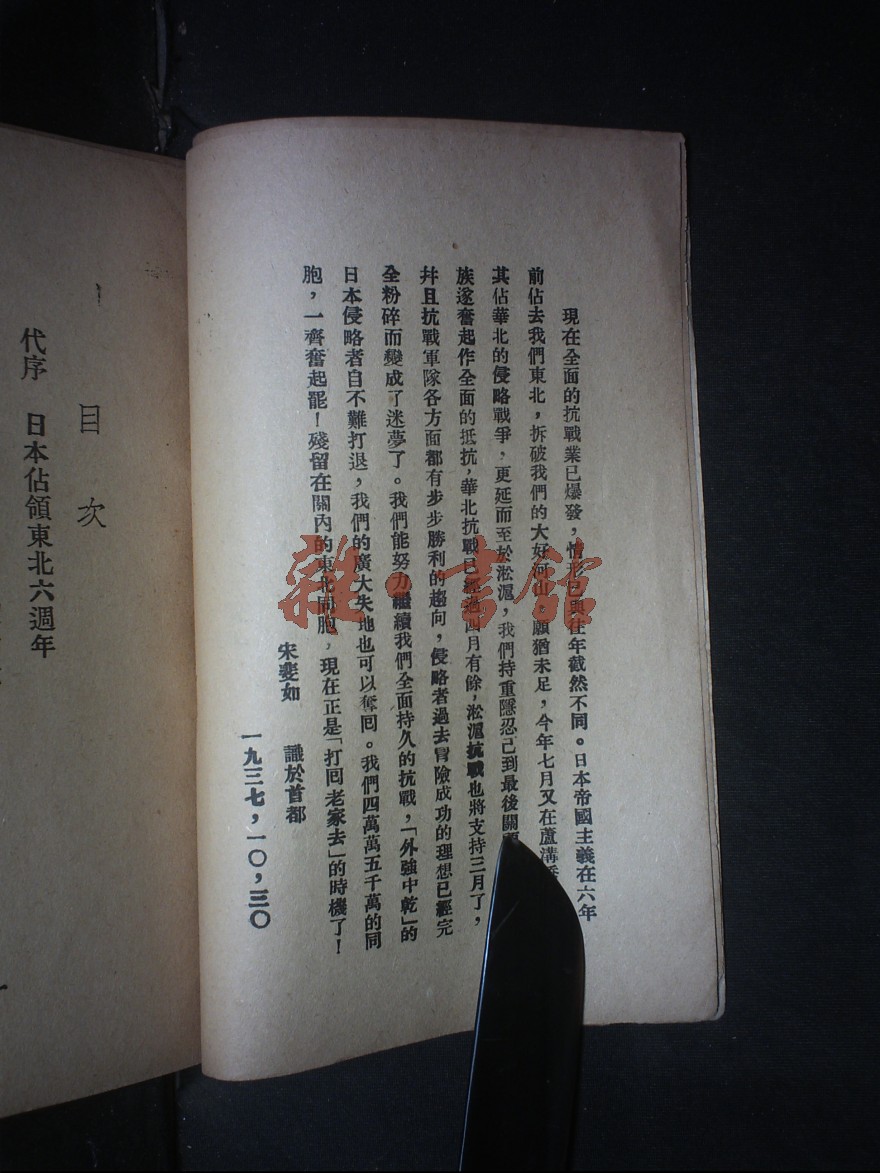 現在全面的抗戰業已爆發，情形已與往年截然不同。日本帝國主義在六年
前佔去我們東北，拆破我們的大好河山，願猶未足，今年七月又在蘆溝
其佔華北的侵略戰爭，更延而至於淞滬，我們持重隱忍已到最後關
族遂奮起作全面的抵抗，華北抗戰已經過四月有餘，淞滬抗戰也將支持三月了，
幷且抗戰軍隊各方面都有步步勝利的趨向，侵略者過去冒險成功的理想已經完
全粉碎而變成了迷夢了。我們能努力繼續我們全面持久的抗戰，「外強中乾」的
日本侵略者自不難打退，我們的廣大失地也可以奪囘。我們四萬萬五千萬的同
胞，一齊奮起罷！殘留在關內的東北同胞，現在正是「打囘老家去」的時機了！
宋斐如　識於首都
一九三七，一〇，三〇
目次
代序　日本佔領東北六週年
雜·書館